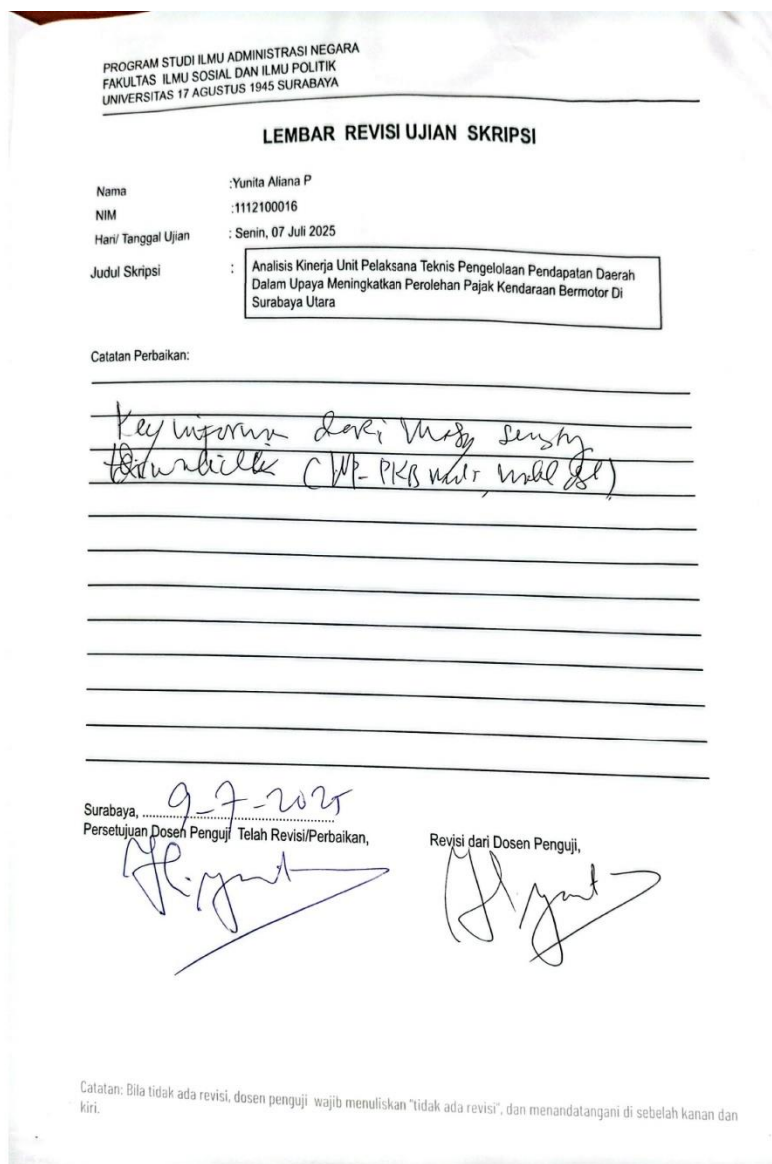 PROGRAM STUDI ILMU ADMINISTRASI NEGARA
FAKULTAS ILMU SOSIAL DAN ILMU POLITIK
UNIVERSITAS 17 AGUSTUS 1945 SURABAYA
LEMBAR REVISI UJIAN SKRIPSI
Nama :Yunita Aliana P
NIM :1112100016
Hari/ Tanggal Ujian : Senin, 07 Juli 2025
Judul Skripsi : Analisis Kinerja Unit Pelaksana Teknis Pengelolaan Pendapatan Daerah
Dalam Upaya Meningkatkan Perolehan Pajak Kendaraan Bermotor Di
Surabaya Utara
Catatan Perbaikan:
Key dari
(WP-PKB
Surabaya, 9-7-2025
Persetujuan Dosen Penguji Telah Revisi/Perbaikan,
Revisi dari Dosen Penguji,
Catatan: Bila tidak ada revisi, dosen penguji wajib menuliskan "tidak ada revisi", dan menandatangani di sebelah kanan dan
kiri.